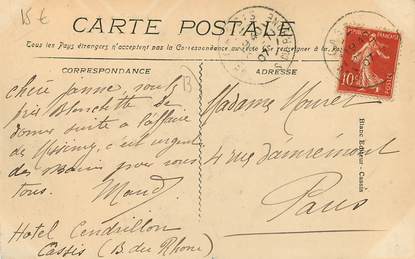 15€
CARTE POSTALE
Tous les Pays étrangers n'acceptent pas la Correspondance au verso (Se renseigner à la Poste)
CORRESPONDANCE
ADRESSE
B
chère Jeanne, 
près Blanchette de
donner suite à l'affaire
de, c'est urgent
des baisers pour vous
tous. Maud
Hotel Cendrillon
Cassis (B. du Rhone)
Madame Mouret
4 rue Damrémont
Paris
10c
POSTES
Blanc Editeur - Cassis